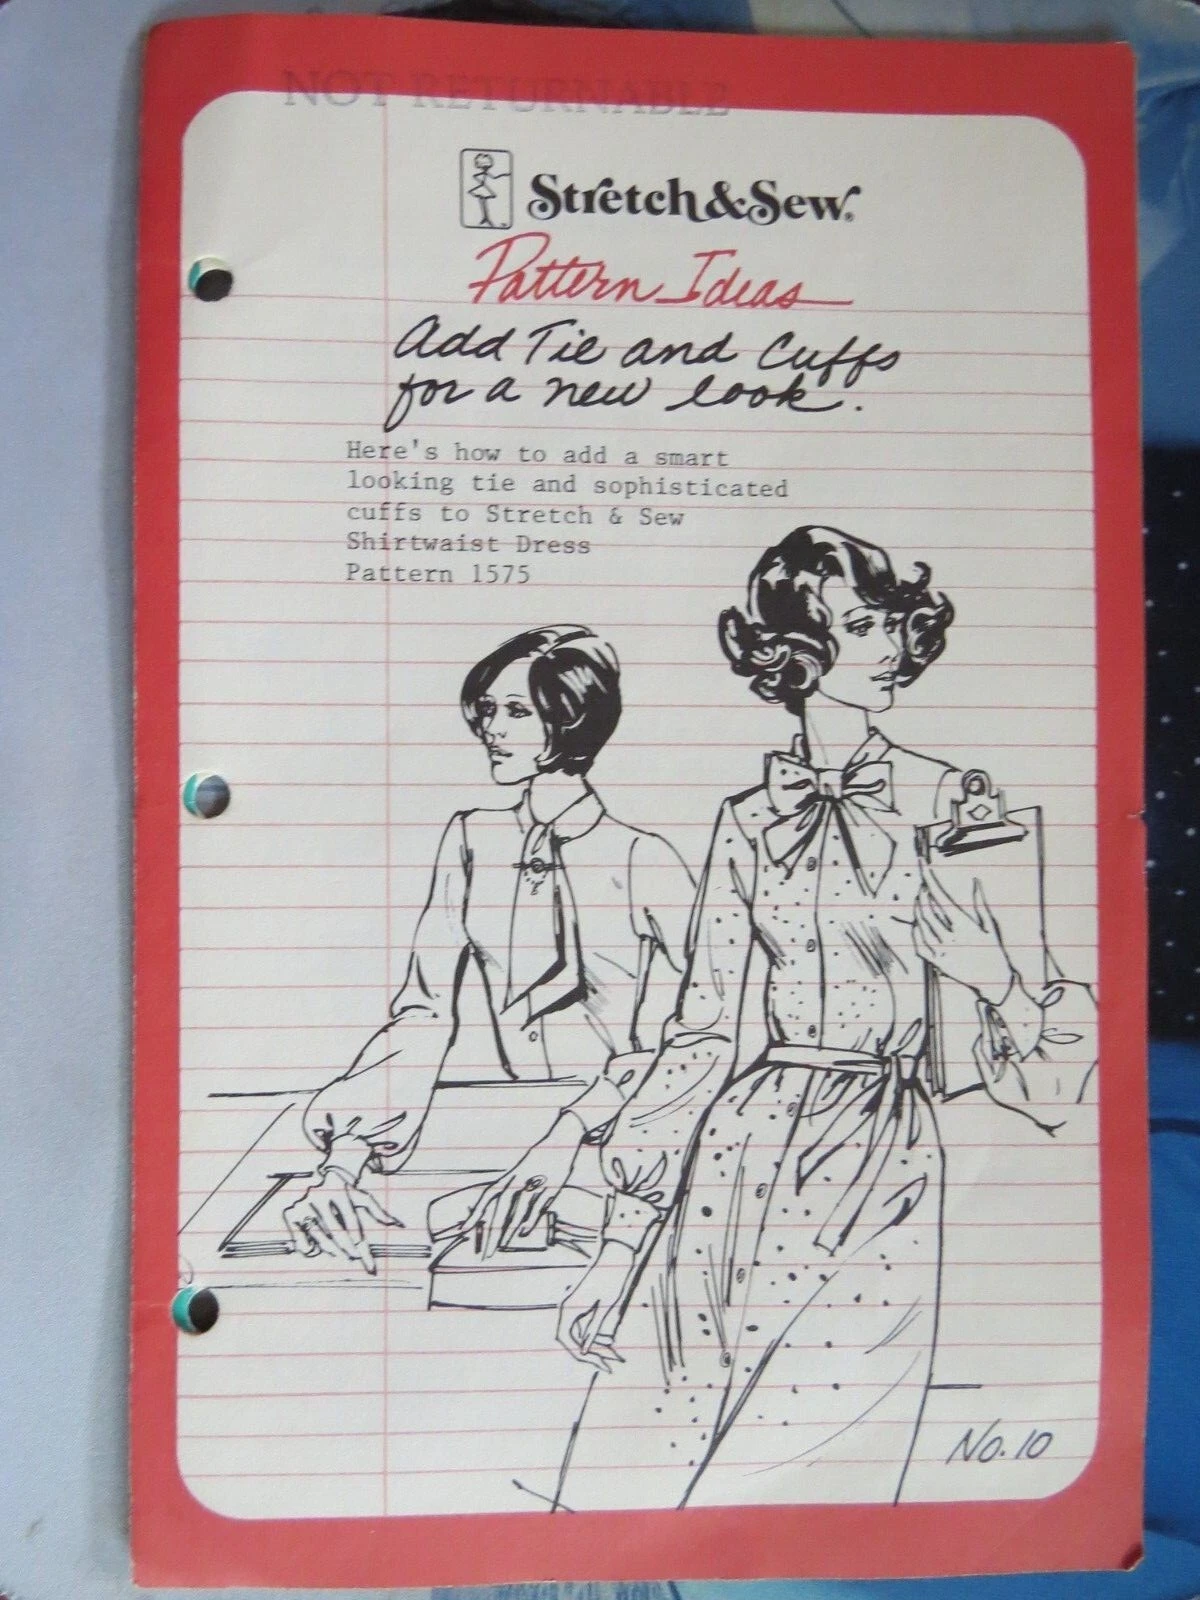 NOT RETURNABLE
Stretch & Sew®
Pattern Ideas
Add Tie and Cuffs
for a new look.
Here's how to add a smart
looking tie and sophisticated
cuffs to Stretch & Sew
Shirtwaist Dress
Pattern 1575
No. 10